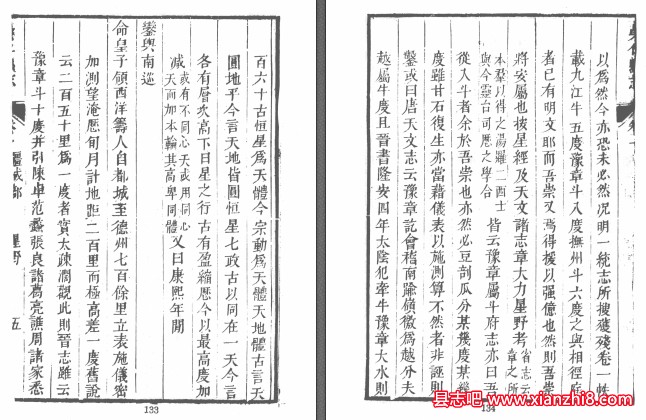 百六十古恒星爲天體今宗動爲天體天地體古言天
圓地平今言天地皆圓恒星七政古以同在一天今言
各有層次高下日星之行古有盈縮歷今以最高度加
減或有不同心天或用同心天而加本輪其高卑同體又曰康熙年間
鑾輿南巡
命皇子領西洋籌人自都城至德州七百餘里立表施儀密
加測望淹歷旬月計地距二百里而極高差一度舊說
云二百五十里爲一度者實太疎濶觀此則晉志雖云
豫章斗十度並引陳卓范蠡張良諸葛亮譙周諸家悉
疆域部 星野 五
133
以爲然今亦恐未必然況明一統志所搜獲殘卷一帙
載九江牛五度豫章斗入度撫州斗六度之與相徑庭
者已有明文耶而吾崇又焉得援以强億也然則吾崇
將安屬也按星經及天文諸志章大力星野考省志云章之所
本羣以得之湯羅二西士與今靈台司歷之學合皆云豫章屬斗府志亦曰吾
從入斗者余於吾崇也亦然必豆剖瓜分某幾度某幾
度雖甘石復生亦當藉儀表以施測算不然者非誣則
鑿或曰唐天文志云豫章訖會稽南踰嶺徼爲越分夫
越屬牛度且晉書隆安四年太陰犯牽牛豫章大水則
134
县志吧 www.xianzhi8.com